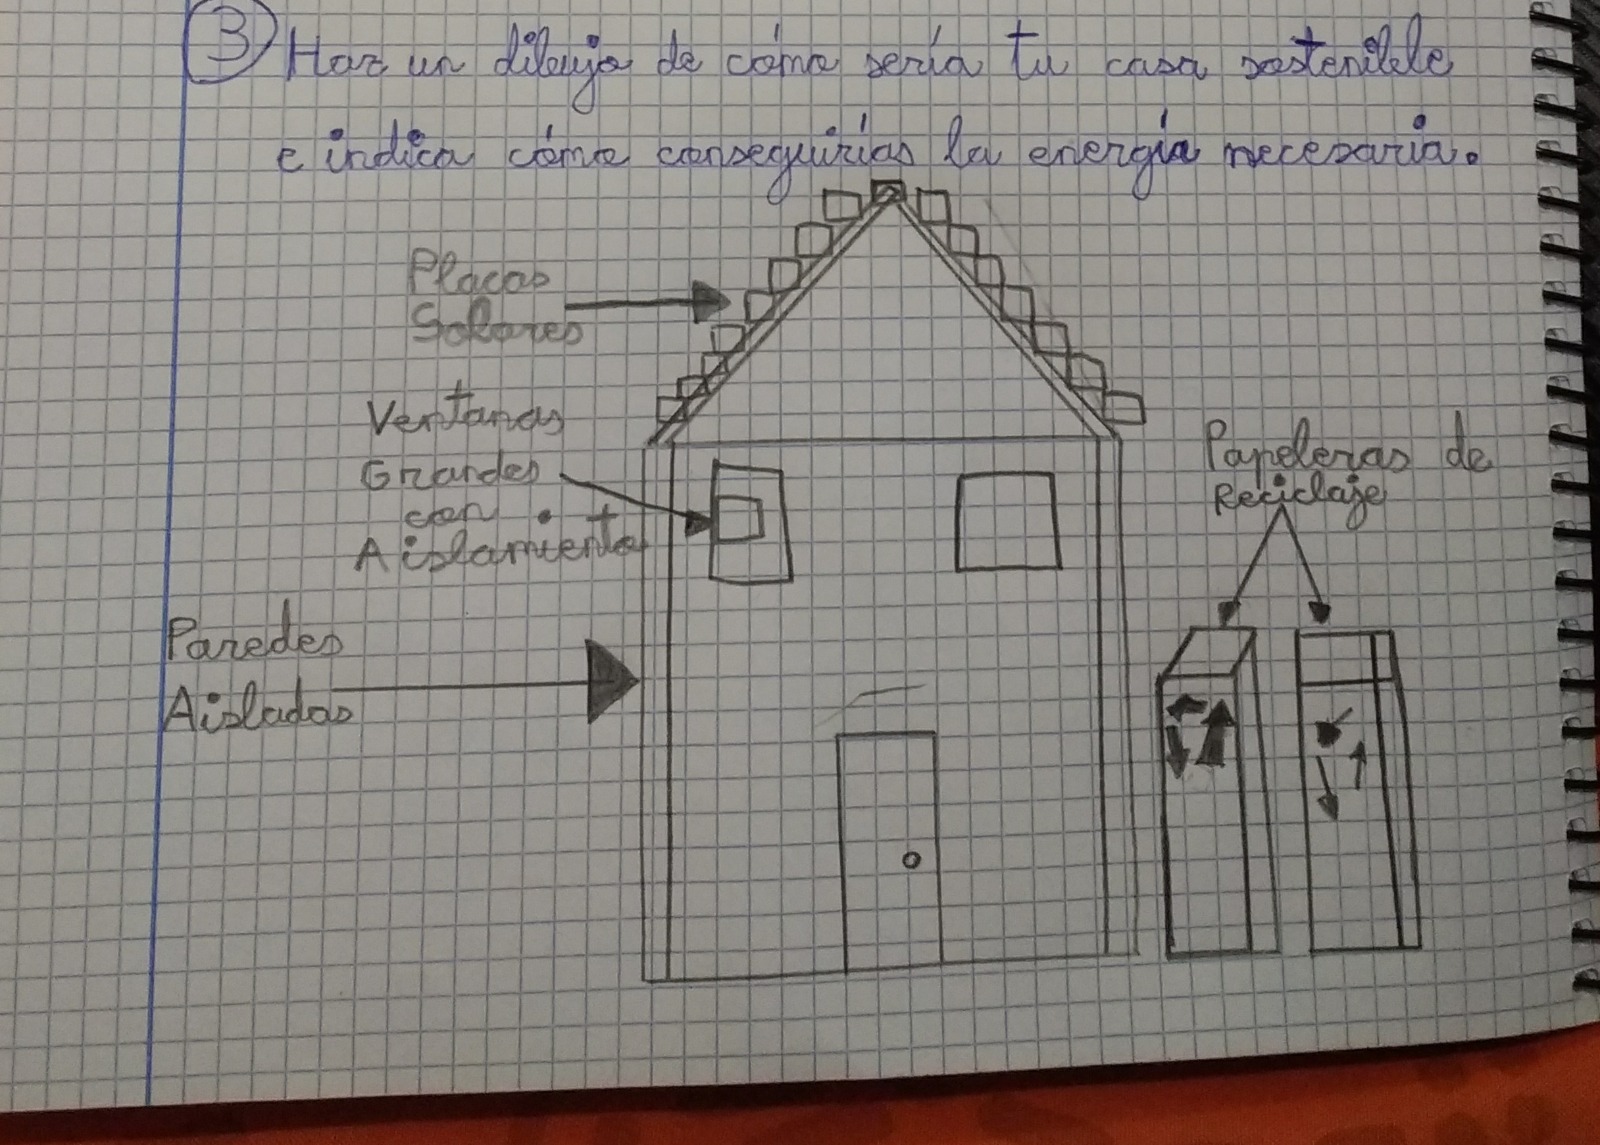 3 Haz un dibujo de cómo sería tu casa sostenible
e indica cómo conseguirías la energía necesaria.
Placas
Solares
Ventanas
Grandes
con
Aislamiento
Papeleras de
Reciclaje
Paredes
Aisladas